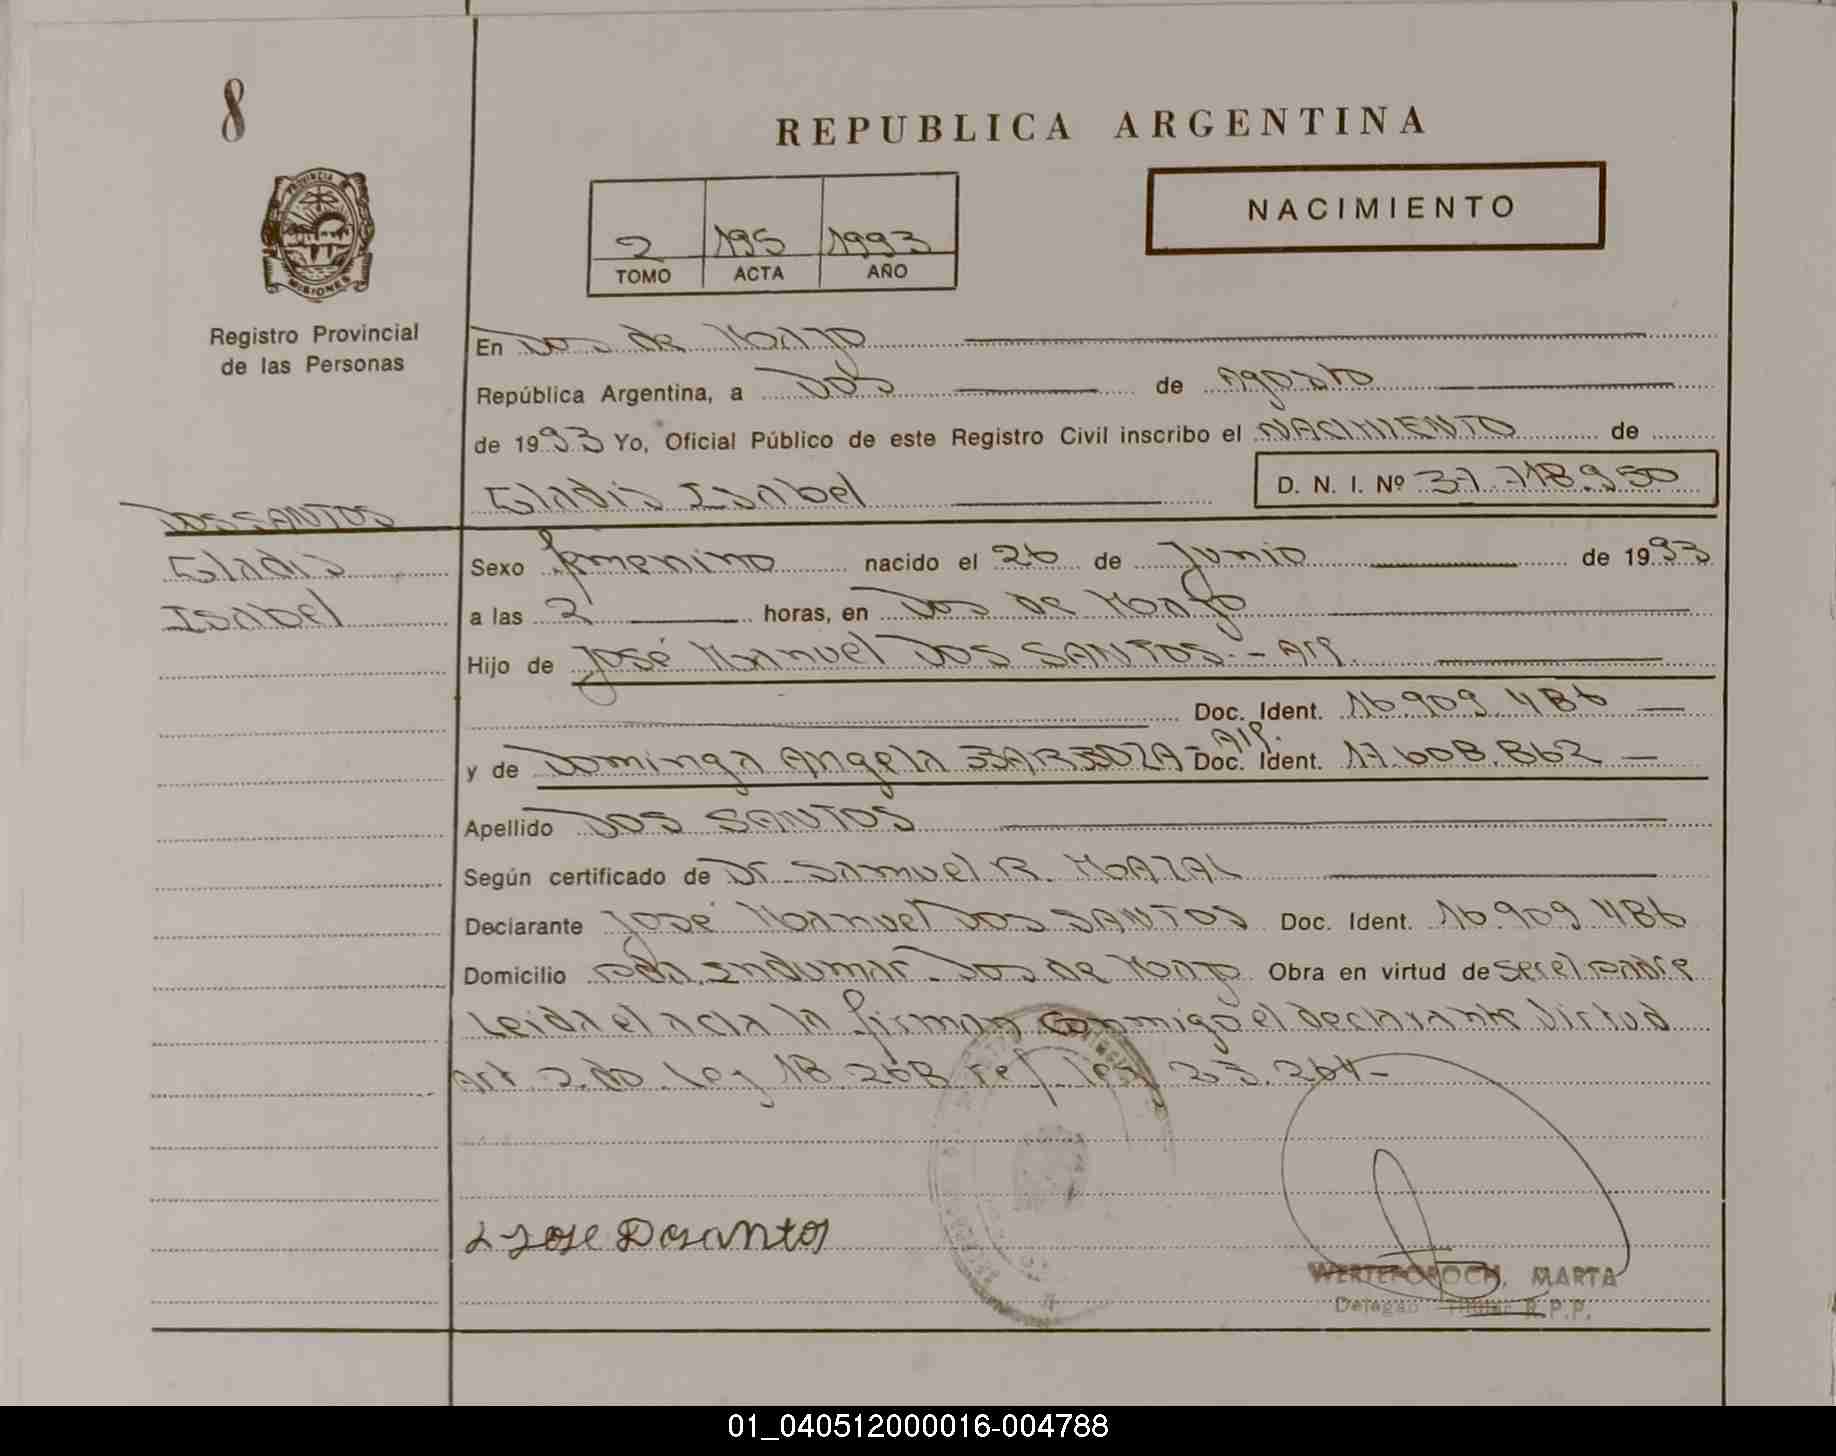 8
REPUBLICA ARGENTINA
NACIMIENTO
2 195 1993
TOMO ACTA AÑO
PROVINCIA DE
MISIONES
Registro Provincial
de las Personas
En Dos de Mayo
República Argentina, a Dos de Agosto
de 1993 Yo, Oficial Público de este Registro Civil inscribo el NACIMIENTO de
Gladis Isabel D. N. I. Nº 37.718.950
DOS SANTOS
Gladis
Isabel
Sexo femenino nacido el 26 de Junio de 1993
a las 2 horas, en Dos de Mayo
Hijo de José Manuel DOS SANTOS.- Arg.
Doc. Ident. 16.909.486
y de Dominga Angela BARBOZA- Arg. Doc. Ident. 17.608.862
Apellido DOS SANTOS
Según certificado de Dr. Samuel R. MOAZAL
Declarante José Manuel DOS SANTOS Doc. Ident. 16.909.486
Domicilio Dos de Mayo Obra en virtud de ser el padre
Leida el acta la firman conmigo el declarante Virtud
Art 2.do Ley 18.268 ref. Ley 23.264-
Jose Dosantos
MARTA
Titular R.P.P.
01_040512000016-004788